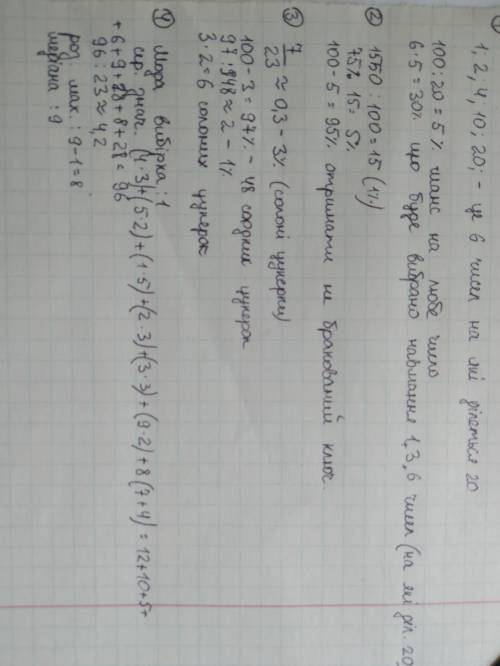 1, 2, 4, 10, 20; - це 6 чисел на які ділеться 20
100 : 20 = 5% шанс на любе число
6 · 5 = 30% що буде вибрано навмання 1, 3, 6 чисел (на які діл. 20
② 1550 : 100 = 15 (1%)
75% 15 = 5%
100 - 5 = 95% отримати не бракований ключ.
③ 7/23 ≈ 0,3 - 3% (солоні цукерки)
100 - 3 = 97% - 48 солодких цукерок
97 : 948 ≈ 2 - 1%
3 · 2 = 6 солоних цукерок
④ Мода вибірка : 1
сер. знач. (4·3)+(5·2)+(1·5)+(2·3)+(3·3)+(9·2)+8(7+4) = 12+10+5+
+6+9+18+8+28 = 96
96 : 23 ≈ 4,2
роз мах. : 9-1=8
медіана : 9